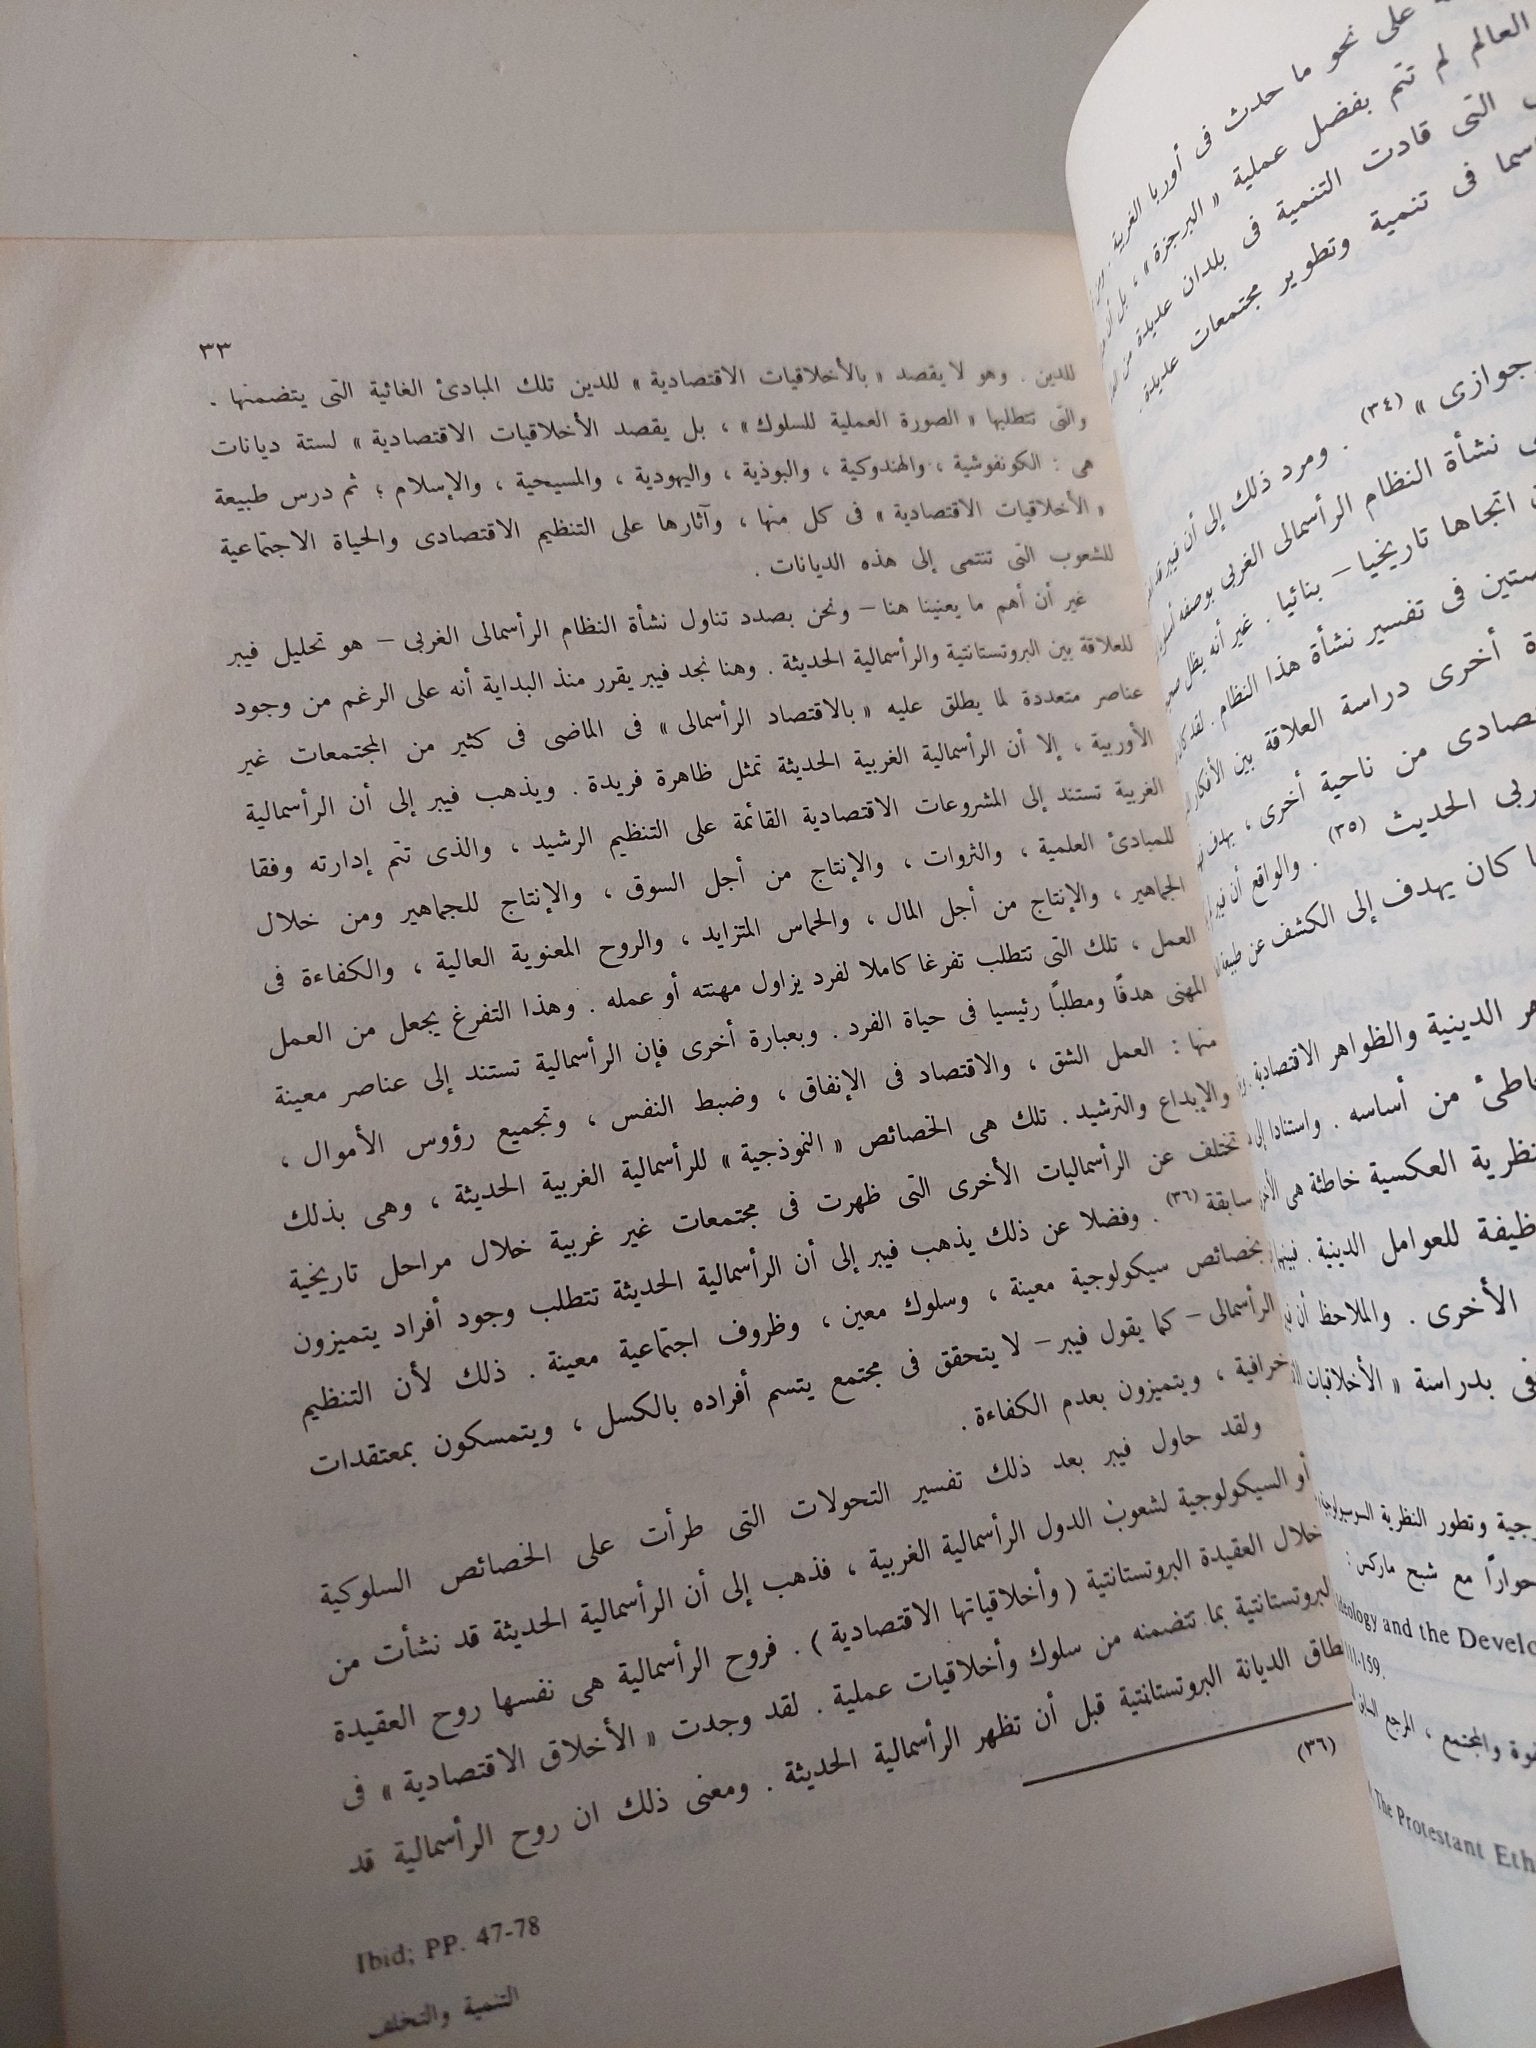 على نحو ما حدث فى أوربا الغربية .
العالم لم تتم بفضل عملية « البرجزة » ، بل أن
التى قادت التنمية فى بلدان عديدة من
فى تنمية وتطوير مجتمعات عديدة .
(٣٤) . ومرد ذلك إلى أن فيبر قد
نشأة النظام الرأسمالى الغربى بوصفه
اتجاها تاريخيا – بنائيا . غير أنه يظل
فى تفسير نشأة هذا النظام . لقد كان
أخرى دراسة العلاقة بين الأفكار
من ناحية أخرى ، يهدف
الحديث (٣٥) . والواقع أن فيبر
كان يهدف إلى الكشف عن طبيعة
الدينية والظواهر الاقتصادية .
من أساسه . واستنادا إلى
العكسية خاطئة هى
للعوامل الدينية . فبينما
الأخرى . والملاحظ أن
بدراسة « الأخلاقيات
وتطور النظرية السوسيولوجية
حواراً مع شبح ماركس :
Ideology and the
111-159.
والمجتمع ، المرجع السابق
The Protestant
٣٣
للدين . وهو لا يقصد « بالأخلاقيات الاقتصادية » للدين تلك المبادئ الغائية التى يتضمنها .
والتى تتطلبها « الصورة العملية للسلوك » ، بل يقصد الأخلاقيات الاقتصادية » لستة ديانات
هى : الكونفوشية ، والهندوكية ، والبوذية ، واليهودية ، والمسيحية ، والإسلام ؛ ثم درس طبيعة
« الأخلاقيات الاقتصادية » فى كل منها ، وآثارها على التنظيم الاقتصادى والحياة الاجتماعية
للشعوب التى تنتمى إلى هذه الديانات .
غير أن أهم ما يعنينا هنا – ونحن بصدد تناول نشأة النظام الرأسمالى الغربى – هو تحليل فيبر
للعلاقة بين البروتستانتية والرأسمالية الحديثة . وهنا نجد فيبر يقرر منذ البداية أنه على الرغم من وجود
عناصر متعددة لما يطلق عليه « بالاقتصاد الرأسمالى » فى الماضى فى كثير من المجتمعات غير
الأوربية ، إلا أن الرأسمالية الغربية الحديثة تمثل ظاهرة فريدة . ويذهب فيبر إلى أن الرأسمالية
الغربية تستند إلى المشروعات الاقتصادية القائمة على التنظيم الرشيد ، والذى تتم إدارته وفقا
للمبادئ العلمية ، والثروات ، والإنتاج من أجل السوق ، والإنتاج للجماهير ومن خلال
الجماهير ، والإنتاج من أجل المال ، والحماس المتزايد ، والروح المعنوية العالية ، والكفاءة فى
العمل ، تلك التى تتطلب تفرغا كاملا لفرد يزاول مهنته أو عمله . وهذا التفرغ يجعل من العمل
المهنى هدفًا ومطلبًا رئيسيا فى حياة الفرد . وبعبارة أخرى فإن الرأسمالية تستند إلى عناصر معينة
منها : العمل الشق ، والاقتصاد فى الإنفاق ، وضبط النفس ، وتجميع رؤوس الأموال ،
والإبداع والترشيد . تلك هى الخصائص « النموذجية » للرأسمالية الغربية الحديثة ، وهى بذلك
تختلف عن الرأسماليات الأخرى التى ظهرت فى مجتمعات غير غربية خلال مراحل تاريخية
سابقة (٣٦) . وفضلا عن ذلك يذهب فيبر إلى أن الرأسمالية الحديثة تتطلب وجود أفراد يتميزون
بخصائص سيكولوجية معينة ، وسلوك معين ، وظروف اجتماعية معينة . ذلك لأن التنظيم
الرأسمالى – كما يقول فيبر – لا يتحقق فى مجتمع يتسم أفراده بالكسل ، ويتمسكون بمعتقدات
خرافية ، ويتميزون بعدم الكفاءة .
ولقد حاول فيبر بعد ذلك تفسير التحولات التى طرأت على الخصائص السلوكية
أو السيكولوجية لشعوب الدول الرأسمالية الغربية ، فذهب إلى أن الرأسمالية الحديثة قد نشأت من
خلال العقيدة البروتستانتية ( وأخلاقياتها الاقتصادية ) . فروح الرأسمالية هى نفسها روح العقيدة
البروتستانتية بما تتضمنه من سلوك وأخلاقيات عملية . لقد وجدت « الأخلاق الاقتصادية » فى
نطاق الديانة البروتستانتية قبل أن تظهر الرأسمالية الحديثة . ومعنى ذلك ان روح الرأسمالية قد
(٣٦)
Ibid; PP. 47-78
التنمية والتخلف